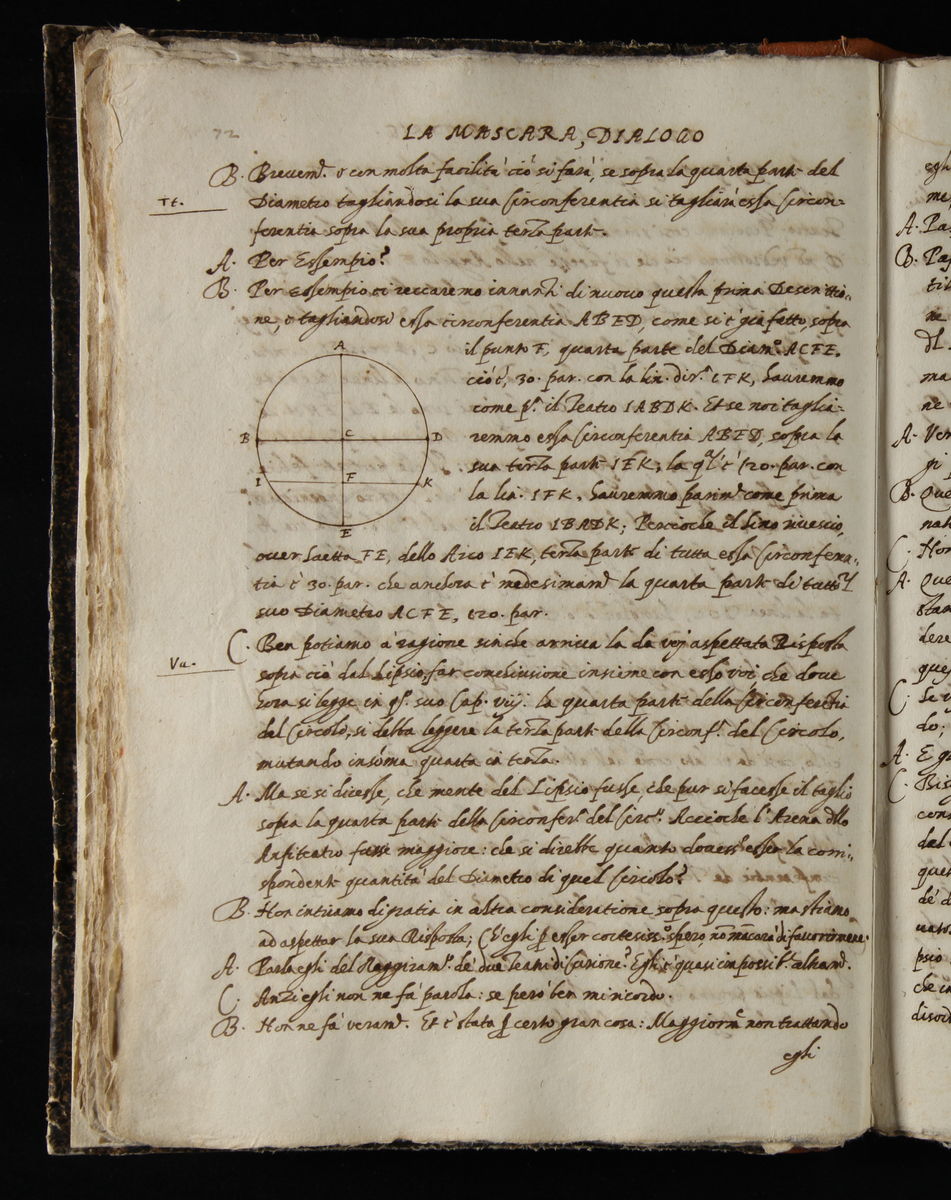 72
LA MASCARA, DIALOGO
B. Brevem.te e con molta facilità ciò si farà, se sopra la quarta parte del
Tt.
Diametro tagliandosi la sua Circonferentia si tagliarà essa Circon-
ferentia sopra la sua propria terza parte.
A. Per Essempio?
B. Per Essempio ci reccaremo innanti di nuovo questa prima Descrittio-
ne, e tagliandosi essa circonferentia ABED, come si è già fatto, sopra
il punto F, quarta parte del Diam.o ACFE.
cioè, 30. par. con la lin. dir.a IFK, hauremmo
come p.a il Teatro IABDK. Et se noi taglia-
remmo essa Circonferentia ABED, sopra la
sua terza parte IEK, la q.al è 120. par. con
la lin. IFK, hauremmo parim.te come prima
il Teatro IBADK; Percioche il sino riverscio,
A
B
C
D
I
F
K
E
over Saetta FE, dello Arco IEK, terza parte di tutta essa Circonferen-
tia è 30. par. che anchora è medesimam.te la quarta parte di tutto 'l
suo Diametro ACFE, 120. par.
C. Ben potiamo à ragione sinche arriva la da voi aspettata Risposta
Vu.
sopra ciò dal Lipsio, far conclusione insieme con esso voi che dove
hora si legge in q.sto suo Cap. viij. la quarta parte della Circonferentia
del Circolo, si debba leggere la terza parte della Circonf.a del Circolo,
mutando insóma quarta in terza.
A. Ma se si dicesse, che mente del Lipsio fusse, che pur si facesse il taglio
sopra la quarta parte della Circonfer.a del Circ.o Accioche l'Arena dello
Anfiteatro fusse maggiore: che si direbbe quanto dovesse esser la corri-
spondente quantità del Diametro di quel Circolo?
B. Non intriamo di gratia in altra consideratione sopra questo: ma stiamo
ad aspettar la sua Risposta; Ch'egli p esser cortesiss.o spero nõ mãcarà di favorirmene.
A. Parla egli del Raggiram.to de' due Teatri di Curione? Egli è quasi impossib.le altram.te
C. Anzi egli non ne fà parola: se però ben mi ricordo.
B. Non ne fà veram.te Et è stata p certo gran cosa: Maggiorm.te non trattando
egli